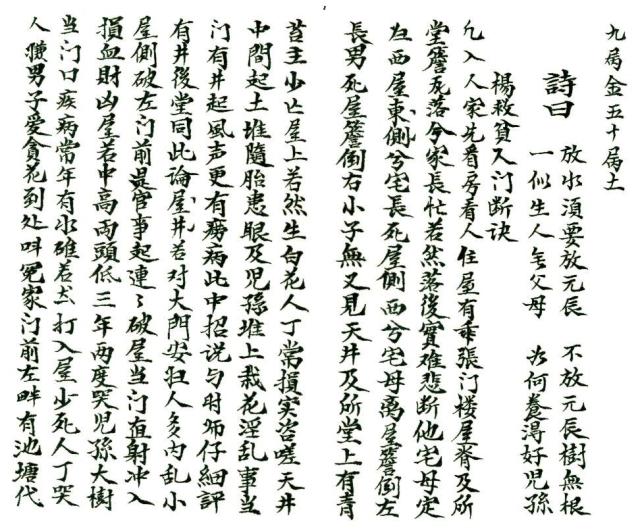 九局金五十局土
詩曰
放水須要放元辰 不放元辰樹無根
一似生人無父母 為何養得好兒孫
楊救貧入門断訣
凢入人家先看房看人住屋有乖張门楼屋脊及所
堂簷死落令家長忙若然落後實难悲断他宅母定
在西屋東側兮宅長死屋側西兮宅母离屋簷倒左
長男死屋簷倒右小子無又見天井及所堂上有青
苔主少亡屋上若然生白花人丁常損实咨嗟天井
中間起土堆隨胎患眼及児孫堆上栽花淫乱事当
门有井起風声更有癆病此中招説与时师仔細評
有井後堂同此論屋井若对大門安妇人多内乱小
屋側破左门前是官事起連々破屋当门直射冲入
損血財凶屋若中高両頭低三年両度哭児孫大樹
当门口疾病常年有水碓若去打入屋少死人丁哭
人 男子爱貪花到处叫冤家门前左畔有池塘代